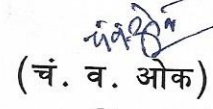 (चं. व. ओक)